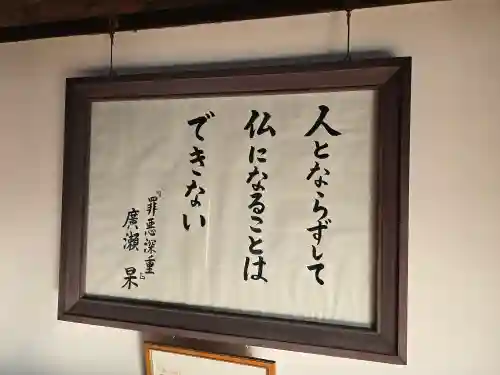 人とならずして
仏になることは
できない
『罪悪深重』
廣瀬 杲